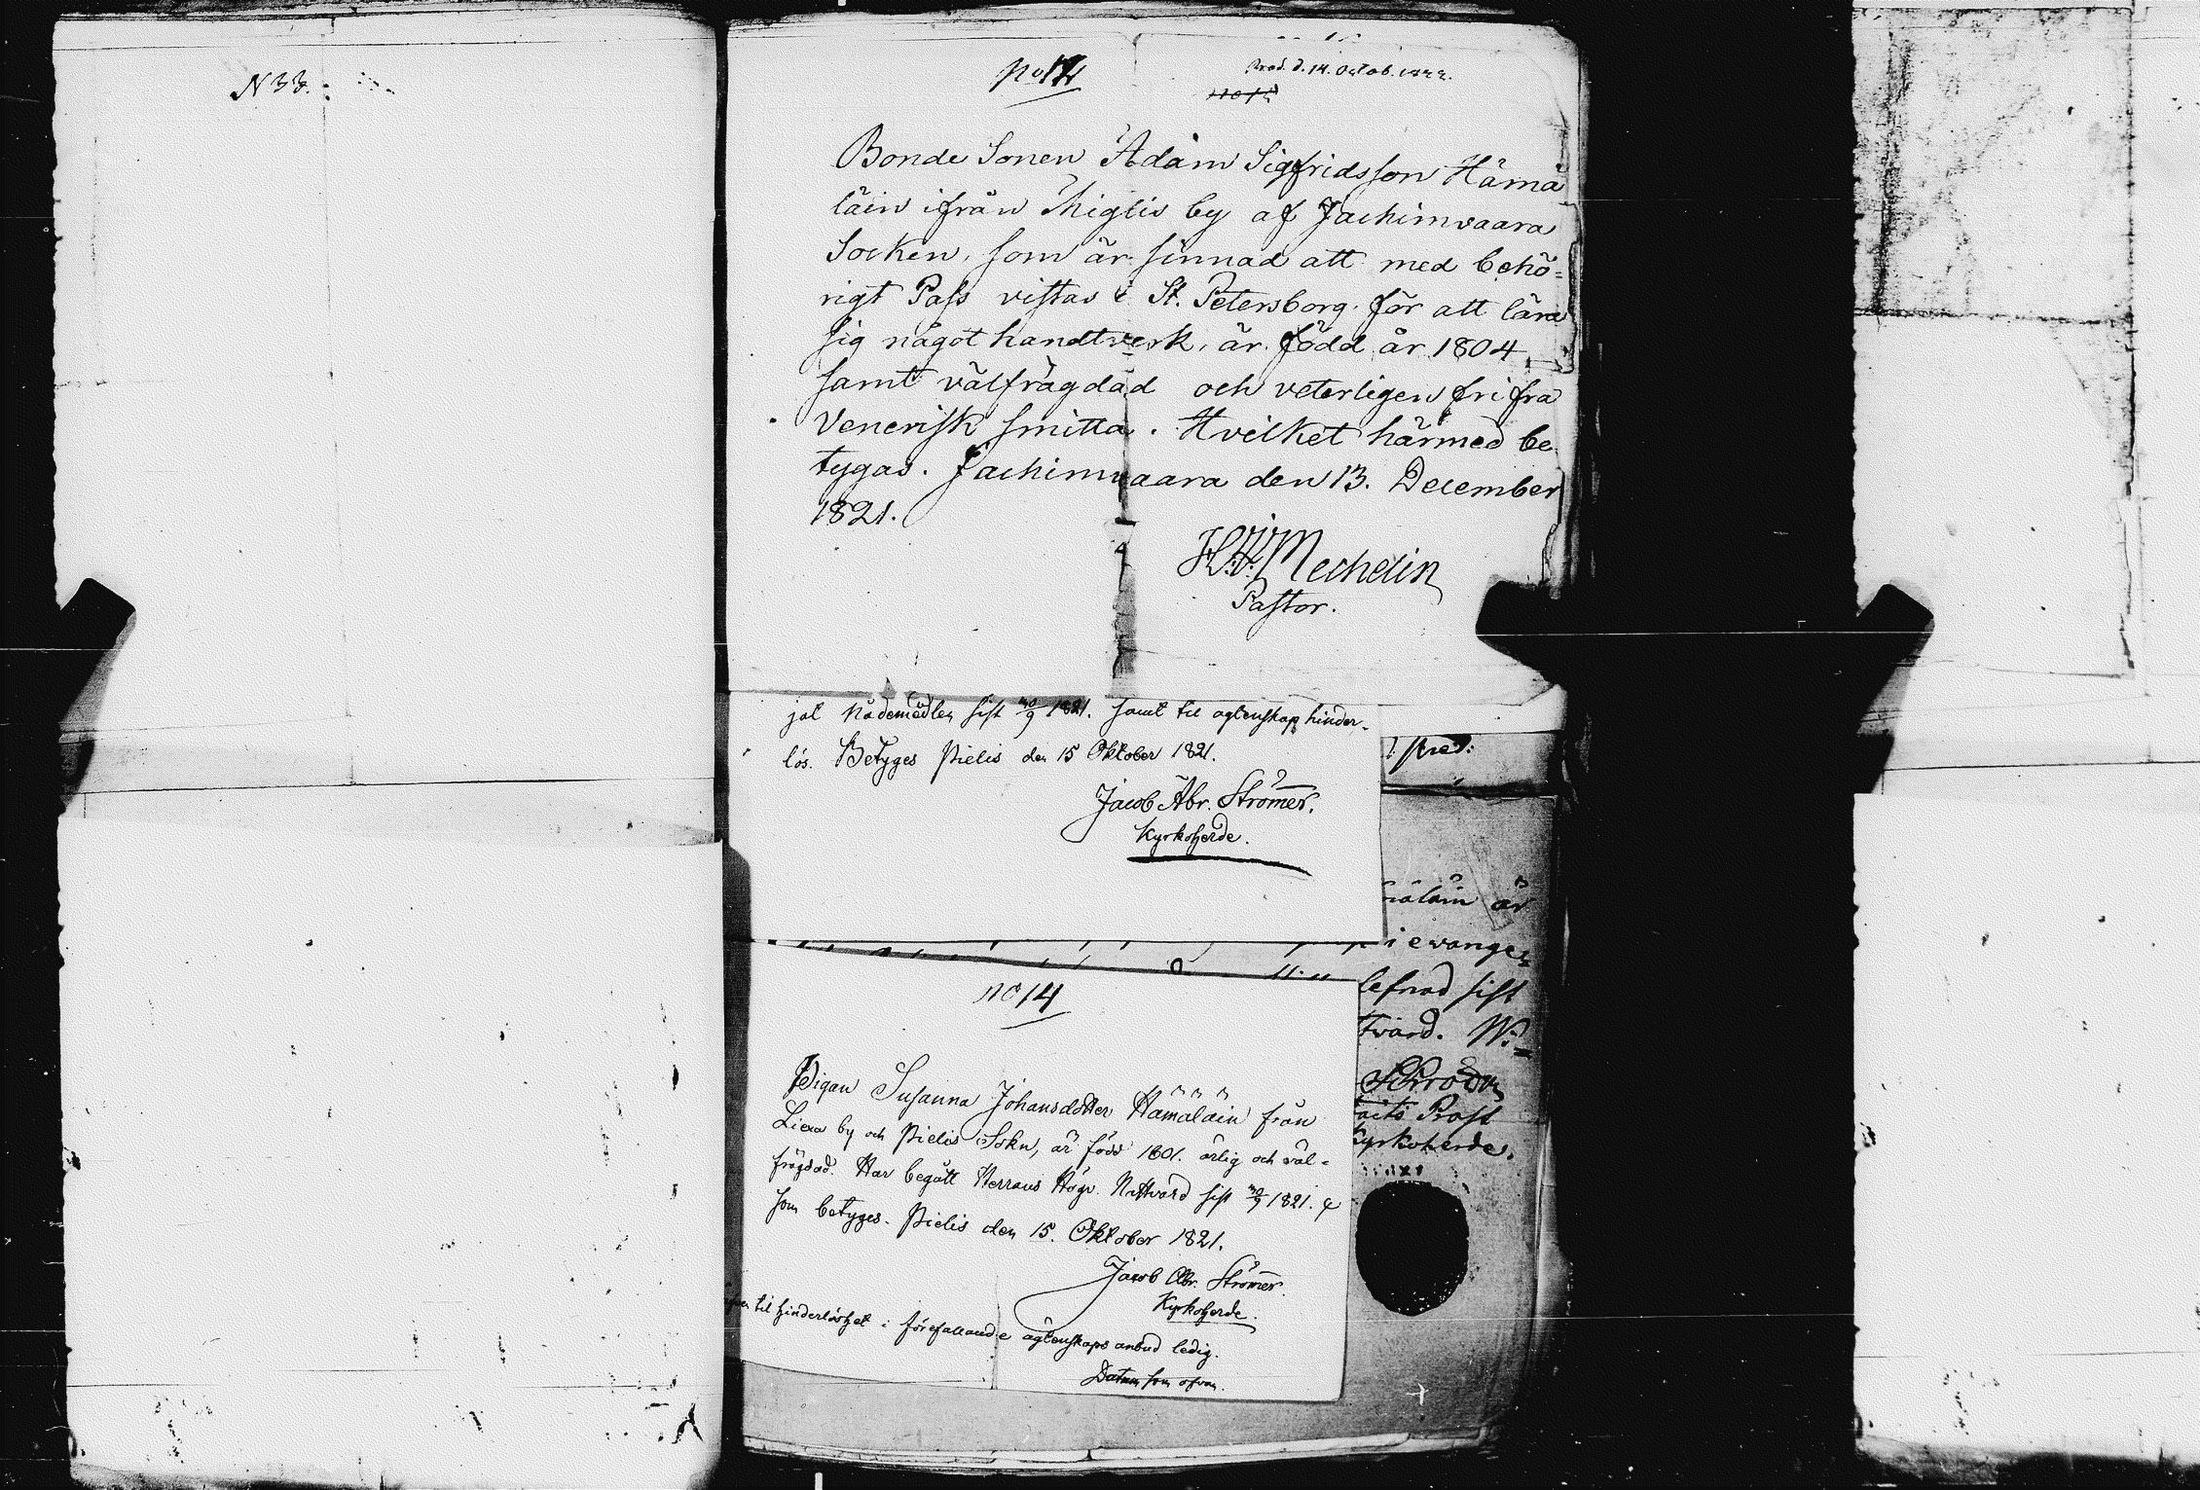 N 33.
No 14
Prod. d. 14. Octob. 1822.
Bonde Sonen Adam Sigfridsson Hämä
läin ifrån Miglis by af Jachimvaara
Socken, som är sinnad att med behö=
rigt Pass vistas i St. Petersborg för att lära
sig något handtverk, är född år 1804
samt välfrägdad och veterligen fri från
Venerisk smitta. Hvilket härmed be
tygas. Jachimvaara den 13. December
1821.
Mechelin
Pastor.
jat Nådemedlen sist 30/9 1821. samt til ägtenskap hinder-
lös. Betyges Pielis den 15 Oktober 1821.
Jacob Abr. Strömer.
Kyrkoherde.
mäläin är
i evange
lefnad sist
tvard. W:
Schröder
Prost
Kyrkoherde.
no 14
Pigan Susanna Johansdotter Hämäläin från
Liexa by och Pielis Sokn, är född 1801. ärlig och väl=
frägdad. Har begått Herrans Högv. Nattvard sist 30/9 1821. &
som betyges. Pielis den 15. Oktober 1821.
Jacob Abr. Strömer.
Kyrkoherde.
til hinderlöshet i förefallande ägtenskaps anbud ledig.
Datum som ofvan.